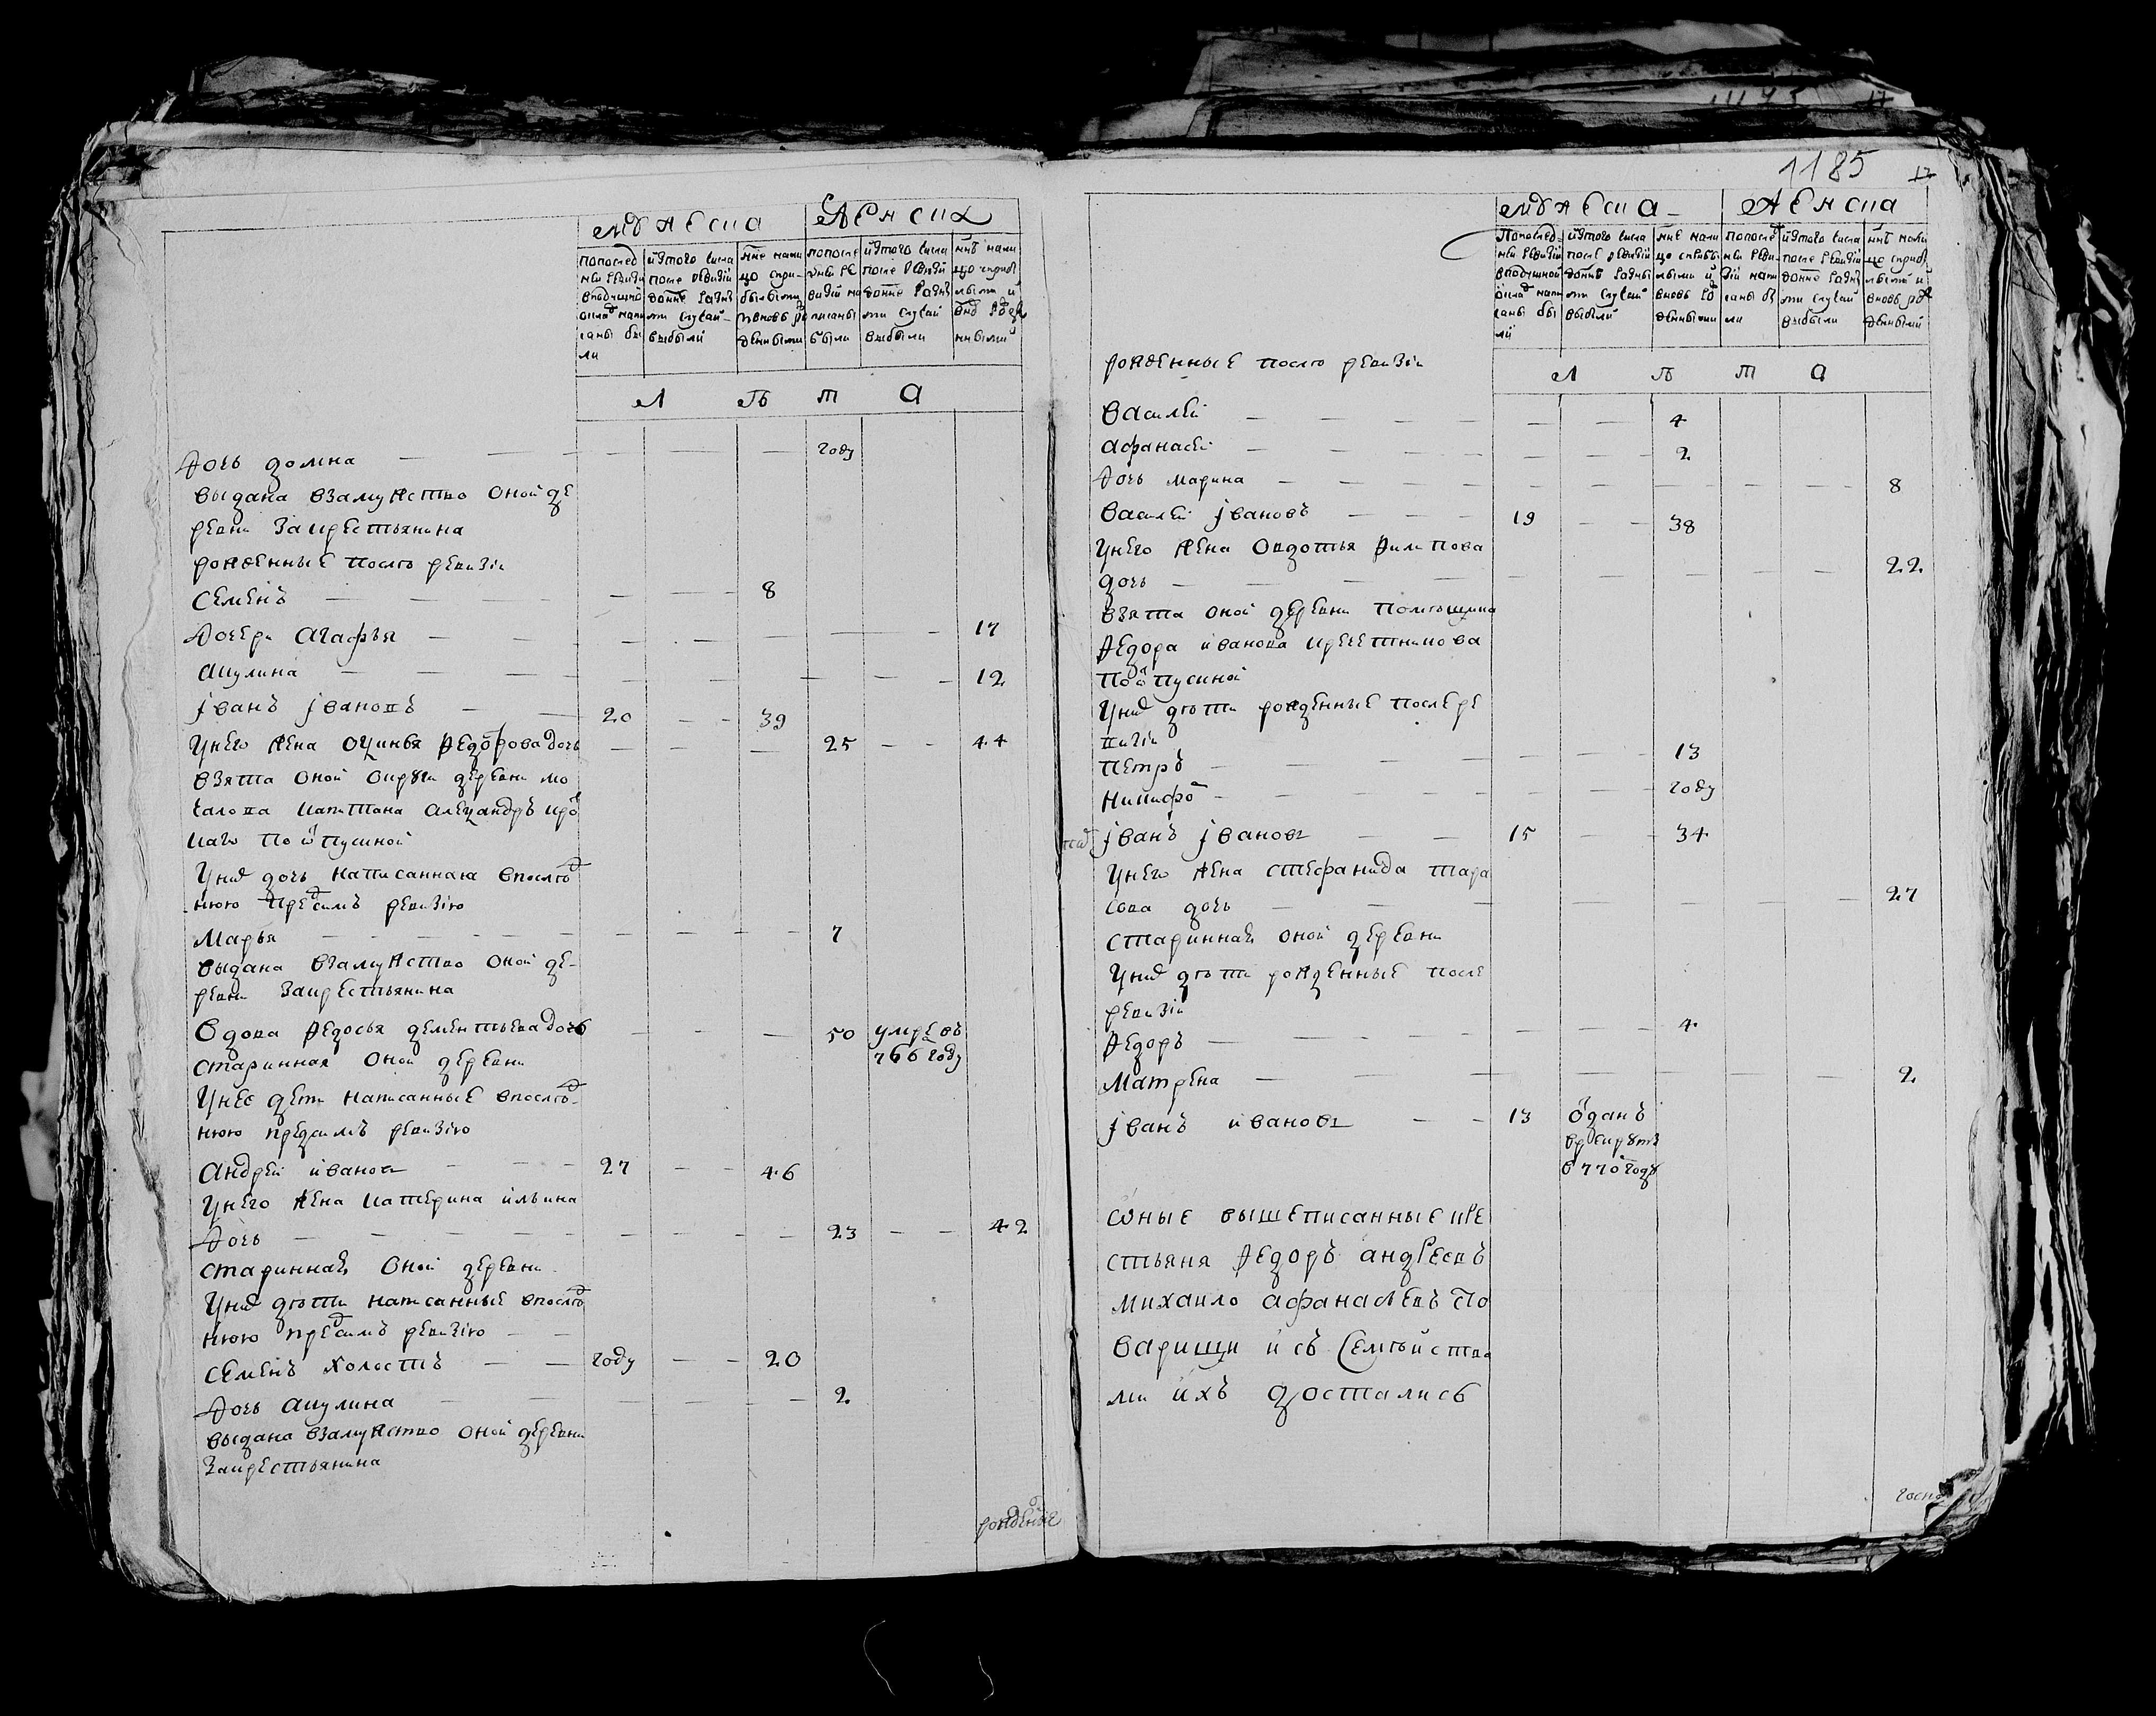 мужеска женска
попослед ний ревизии вподушной оклад написаны были
изтого числа после ревизии донне разными случаи выбыли
ныне налицо сприбылыми и вновь рожденными
попоследней ревизии написаны были
изтого числа после ревизии донне разными случаи выбыли
ныне налицо сприбылыми и вновь рожденными
л ѣ т а
дочь домна году
выдана взамужство оной де
ревни закрестьянина
рожденные послѣ ревизіи
Семенъ 8
дочери агафья 17
акулина 12
іванъ івановъ 20 39
унего жена Федорова дочь 25 44
взята оной округи деревни мо
капитана
по отпускной
уних дочь написанная впослѣд
нюю пред симъ ревизію
Марья 7
выдана взамужство оной де-
ревни закрестьянина
вдова Федосья дементьева дочь 50 умре въ
766 году
старинная оной деревни
унее дети написанные впослѣд
нюю предсимъ ревизію
андрей ивановъ 27 46
унего жена катерина ильина
дочь 23 42
старинная оной деревни
уних дѣти написанные впослѣд
нюю пред симъ ревизію
семенъ холостъ году 20
дочь акулина 2
выдана взамужство оной деревни
закрестьянина
рожденные
1185 17
мужеска женска
Попоследней ревизии вподушной оклад написаны были
изтого числа после ревизии донне разными случаи выбыли
ныне налицо сприбылыми и вновь рожденными
попоследней ревизии написаны были
изтого числа после ревизии донне разными случаи выбыли
ныне налицо сприбылыми и вновь рожденными
рожденные послѣ ревизіи
л ѣ т а
василей 4
афанасей 2
дочь марина 8
василей івановъ 19 38
унего жена овдотья Филипова
дочь 22
взята оной деревни помѣщика
Федора иванова
по отпускной
уних дѣти рожденные после ре
визіи
петръ 13
никифо году
іванъ івановъ 15 34
унего жена стефанида тара
сова дочь 27
старинная оной деревни
уних дѣти рожденные после
ревизіи
Федоръ 4
Матрена 2
іванъ ивановъ 13 отданъ
врекруты
в 770 году
оные вышеписанные кре
стьяня Федоръ андреевъ
михаило афанасьевъ то
варищи и съ семѣйства
ми ихъ достались
госпо